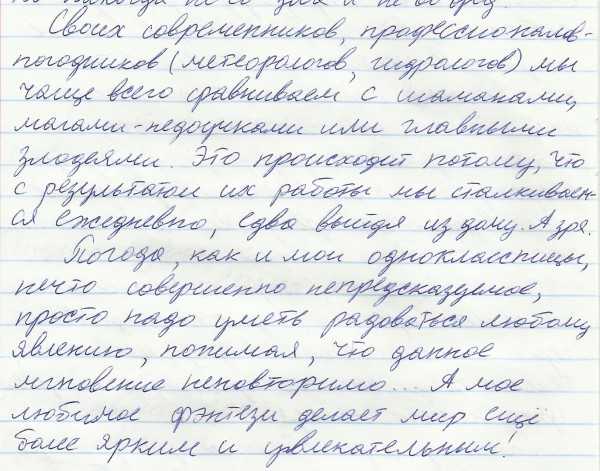 никогда не со зла и не
Своих современников, профессионалов-
погодников (метеорологов, гидрологов) мы
чаще всего сравниваем с шаманами,
магами-недоучками или главными
злодеями. Это происходит потому, что
с результатом их работы мы сталкиваем-
ся ежедневно, едва выйдя из дому. А зря.
Погода, как и мои одноклассницы,
нечто совершенно непредсказуемое,
просто надо уметь радоваться любому
явлению, понимая, что данное
мгновение неповторимо... А мое
любимое фэнтези делает мир ещё
более ярким и увлекательным!